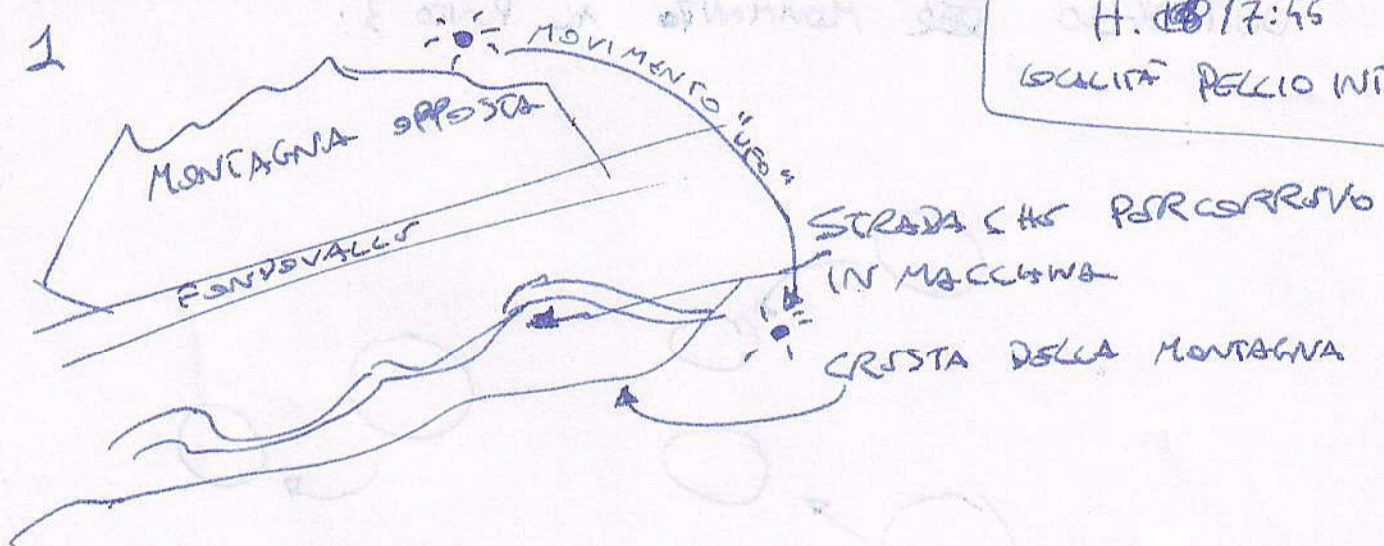 1
H. 17:45
LOCALITÀ PELLIO INT
MOVIMENTO "UFO"
MONTAGNA OPPOSTA
FONDOVALLE
STRADA CHE PERCORREVO
IN MACCHINA
CRESTA DELLA MONTAGNA